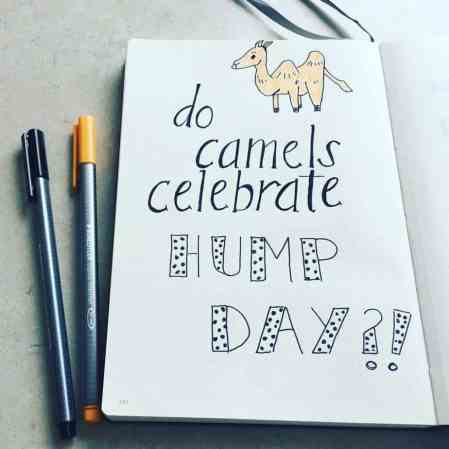 do
camels
celebrate
HUMP
DAY?!